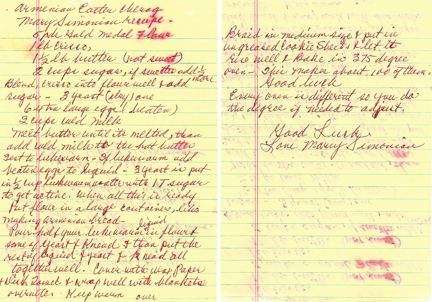 Armenian Easter Cherag
Mary Simonian recipe -
5 lbs Gold Medal Flour
1 lb Crisco,
1 1/2 lb butter (not sweet)
2 cups sugar, if sweeter add 1/2 more
Blend crisco into flour well & add
sugar - 3 yeast ( 
) one
6 extra large eggs (beaten)
2 cups cold milk
Melt butter until its melted, than
add cold milk to the hot butter
Just to lukewarm - If lukewarm add
beaten eggs to liquid - 3 yeast is put
in 1/2 cup lukewarm water with 1 T sugar
to get active. When all this is ready
Put flour in a large container, like
making Armenian bread -
Pour half your lukewarm liquid in flour &
some of yeast & knead & than put the
rest of liquid & yeast & knead all
together well. Cover with wax paper
& dish towel & wrap well with blankets
overnite. Keep warm over
Braid in medium size & put in
ungreased cookie sheets & let it
rise well & Bake in 375 degree
oven - This makes about 100 of them.
Good luck
Every oven is different so you do
the degree if need to adjust.
Good Luck
Love Mary Simonian